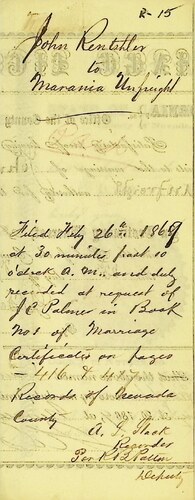 R-15
John Rentchler
to
Marania Unfright
Filed Feby 26th 1869
at 30 minutes past 10
o'clock A.M. and duly
recorded at request of
J C Palmer in Book
No 1 of Marriage
Certificates on pages
416 & 417
Records of Nevada
County
A. J. Hook
Recorder
Per
Deputy